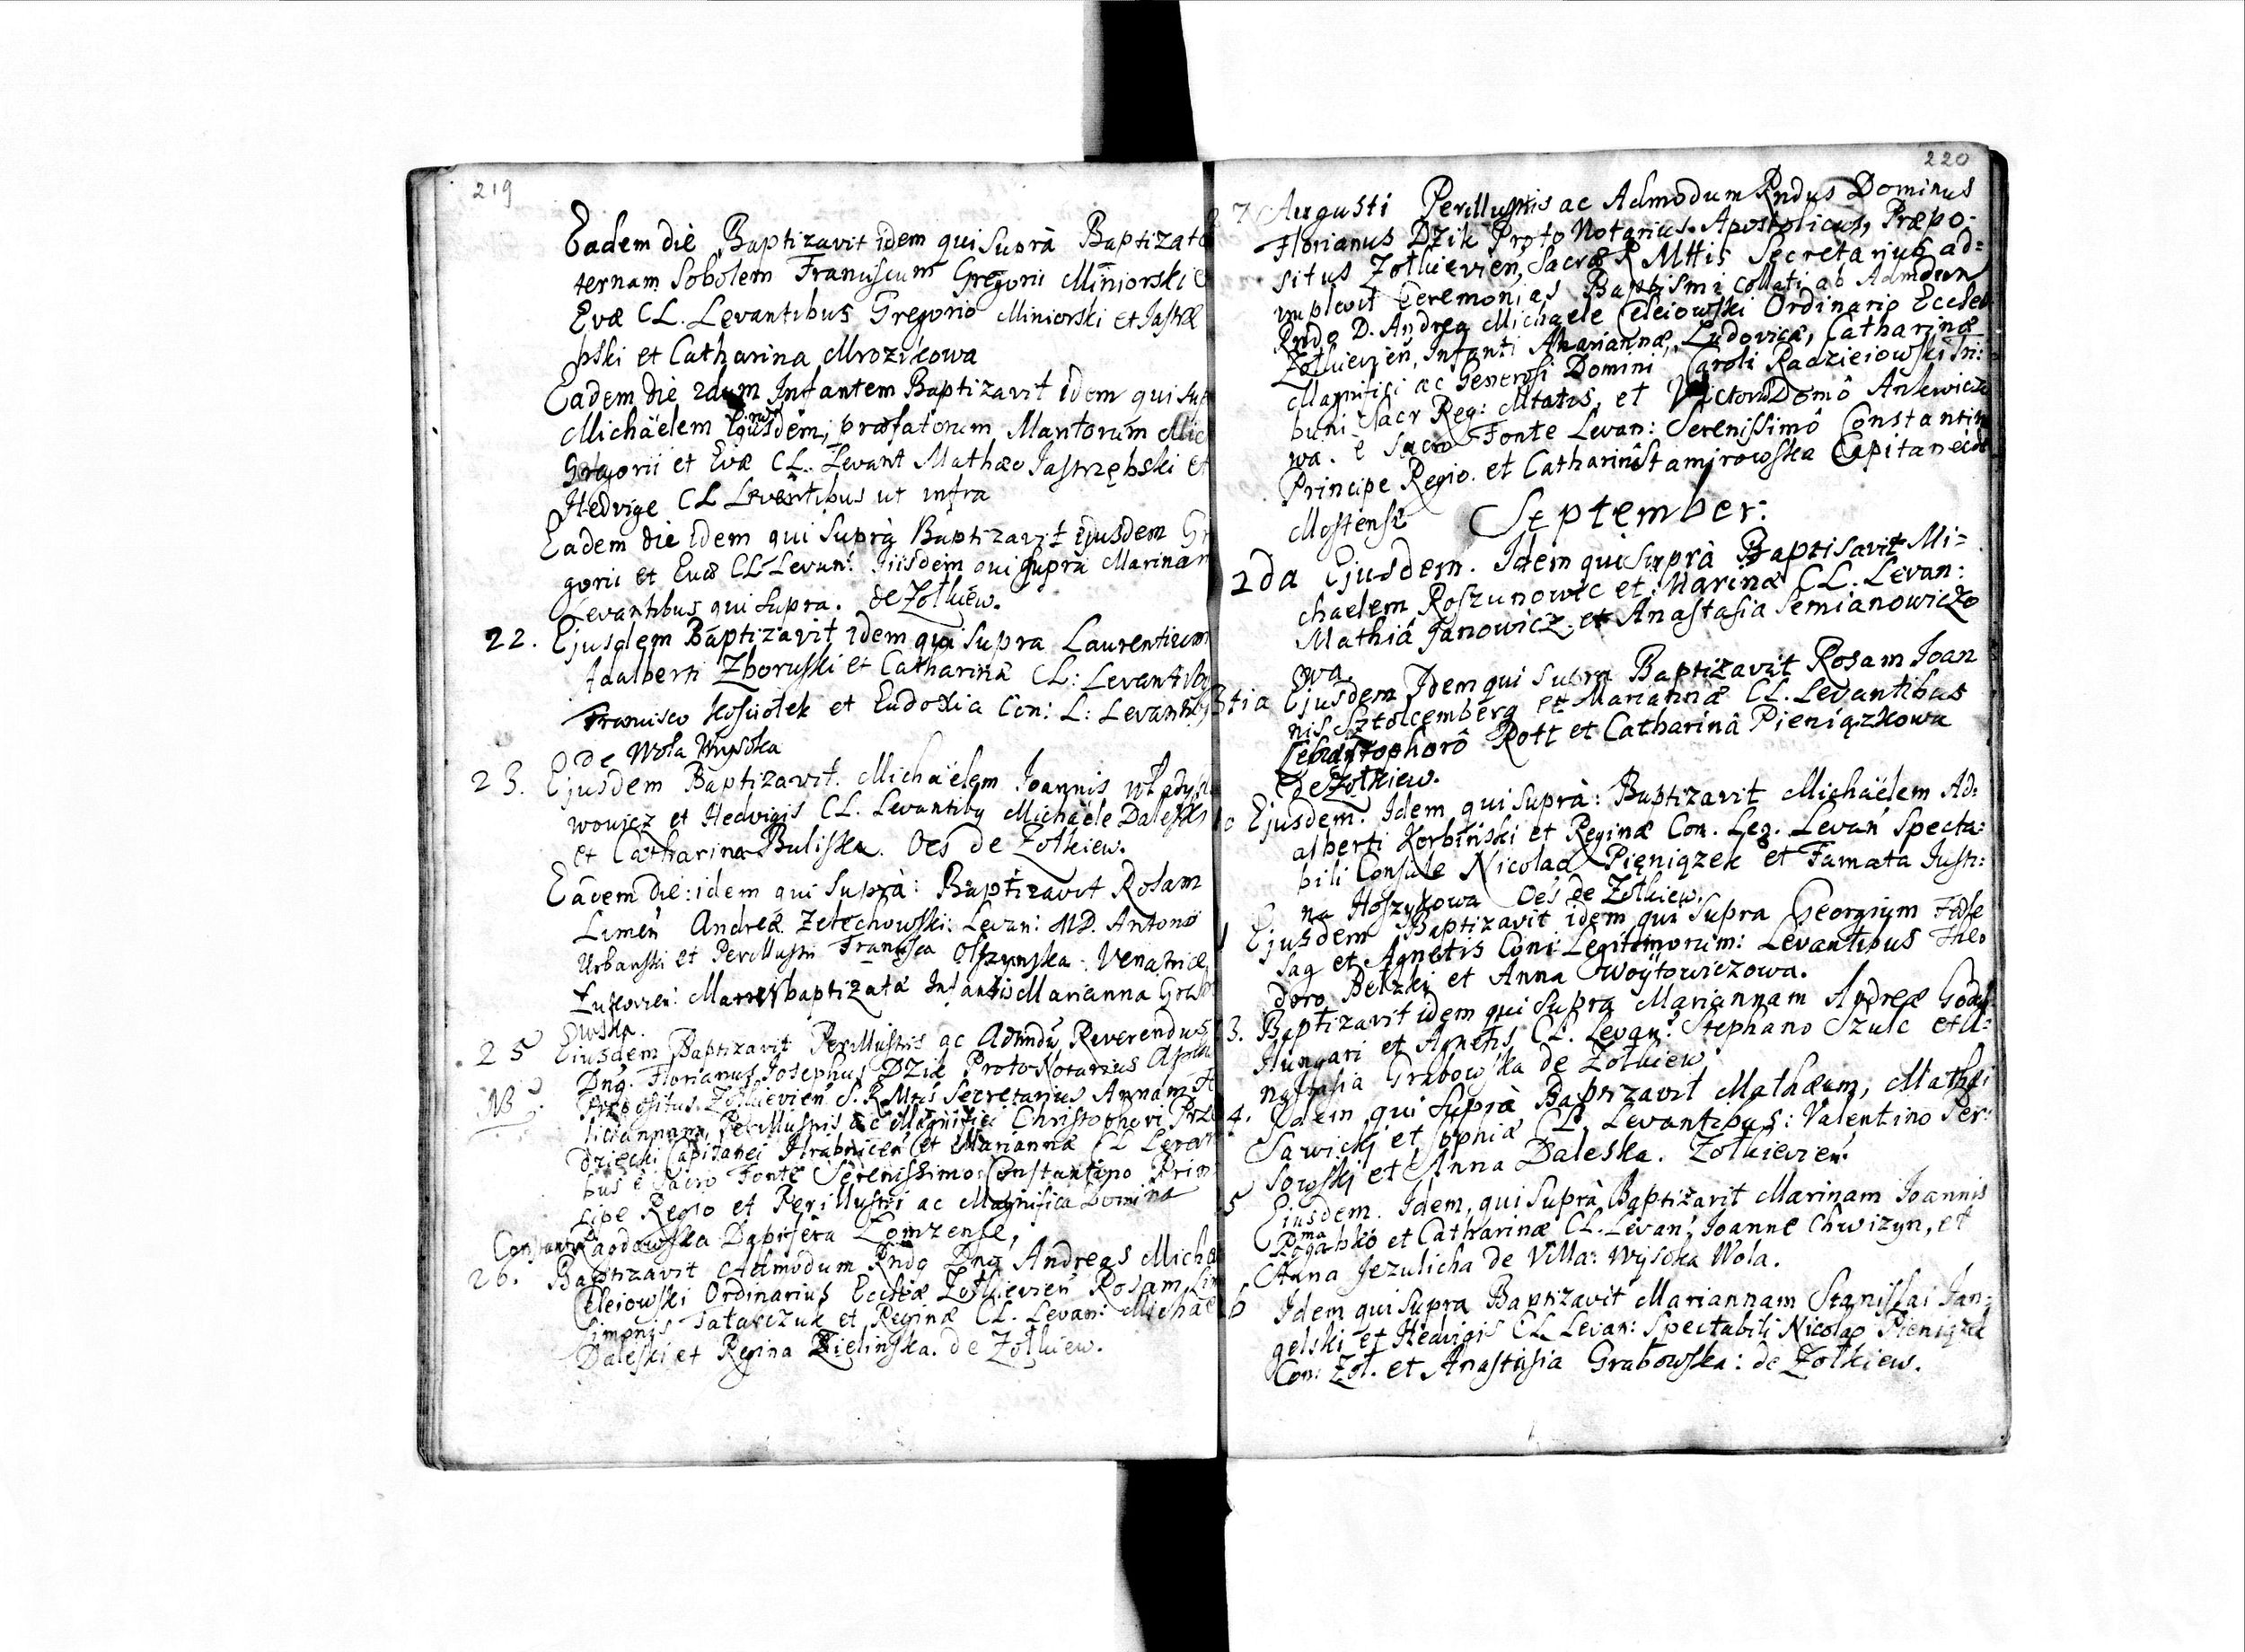 219
Eadem die Baptizavit idem qui suprà Baptizat
ternam Sobolem Franciscum Gregorii Miniorski e
Evæ CL. Levantibus Gregorio Miniorski et Jastræ
bski et Catharina Mrozikowa
Eadem die 2dum Infantem Baptizavit idem qui sup
Michäelem Ejusdem, præfatorum Maritorum Mic
Gregorii et Evæ CL. Levant Mathæo Jastrzębski et
Hedvige CL Levantibus ut infra
Eadem die idem qui suprà Baptizavit ejusdem Gr
gorii et Evæ CL Levan: Iiisdem qui suprà Marinam
Levantibus qui supra. de Zołkiew.
22. Ejusdem Baptizavit idem qui supra Laurentium
Adalberti Zboruski et Catharinæ CL: Levantibq
Francisco Kosciołek et Eudoxia Con: L: Levantibq
de Wola Wysoka
23. Ejusdem Baptizavit. Michäelem Joannis Władys
wowicz et Hedvigis CL. Levantibq Michäele Daleski
et Catharina Buliska. Oes de Zołkiew.
Eadem die: idem qui suprà: Baptizavit Rosam
Limen Andreæ Zelechowski: Levan: MD. Antonio
Urbanski et Perillustri Francisca Olszynska: Venatrice
baptizatæ Infantis Marianna Grabo
wska.
25 Ejusdem Baptizavit Perillustris ac Admdu Reverendus
NB. Dnq. Florianus Josephus Dzik Proto Notarius Aplicu
Præpositus Zołkievien S. R. Mtis Secretarius Annam
liciannam, Perillustris ac Magnifici Christophori Prze
dziecki Capitanei Hrabnicen et Mariannæ CL Levan
bus è Sacro Fonte Serenissimo Constantino Prin
cipe Regio et Perillustri ac Magnifica Domina
Constantia Raodowska Dapifera Łomzense,
26. Baptizavit Admodum Rndq Dnq Andreas Micha
Celeiowski Ordinarius Ecclæ Zołkievien Rosam Lim
Simonis Tatarczuk et Reginæ CL. Levan: Michae
Daleski et Regina Zielinska. de Zołkiew.
220
27 Augusti Perillustris ac Admodum Rndus Dominus
Florianus Dzik Proto Notarius Apostolicus, Præpo-
situs Zołkievien, Sacræ R Mttis Secretarius ad=
implevit Ceremonias Baptismi collati ab Admdum
Rndo D. Andrea Michaele Celeiowski Ordinario Eccles
Zołkievien, Infanti Mariannæ, Ludovicæ, Catharinæ
Magnifici ac Generosi Domini Caroli Radzieiowski Tri:
buni Sacr Reg: Mtatis, et Domô Ankwiczo
wa. è Sacro Fonte Levan: Serenissimô Constantin
Principe Regio. et Catharinâ Stamirowska Capitaneide
Mostensi September:
2da Ejusdem. Idem qui suprà Baptisavit Mi=
chaelem Roszunowic et Marinæ CL. Levan:
Mathiâ Janowicz et Anastasia Semianowiczo
wa.
3tia Ejusdem Idem qui supra Baptizavit Rosam Joan
nis Sztolcemberg et Mariannæ CL. Levantibus
Christophorô Rott et Catharinâ Pieniązkowa
de Zołkiew.
10 Ejusdem. Idem qui suprà: Baptizavit Michäelem Ad:
alberti Korbinski et Reginæ Con. Leg. Levan Specta:
bili Consule Nicolao Pieniązek et Famata Justi:
na Hoszykowa Oes de Zołkiew.
1 Ejusdem Baptizavit idem qui supra Georgium Fase
sag et Agnetis Coni: Legitimorum: Levantibus Theo
doro Belzki et Anna Woytowiczowa.
3. Baptizavit idem qui supra Mariannam Andreæ
Hungari et Agnetis CL. Levan: Stephano Szulc et A:
nastasia Grabowska de Zołkiew
4. Idem qui suprà Baptizavit Mathæum, Mathæi
Sawicki et Sophiæ CL. Levantibus: Valentino Per:
sowski et Anna Daleska. Zołkievien:
5 Ejusdem. Idem, qui suprà Baptizavit Marinam Joannis
et Catharinæ CL. Levan: Joanne Chwizyn, et
Anna Jezulicha de Villa: Wysoka Wola.
6 Idem qui supra Baptizavit Mariannam Stanislai Jan:
gelski et Hedvigis CL Levan: Spectabili Nicolao Pieniązek
Con: Zol. et Anastasia Grabowska: de Zołkiew.